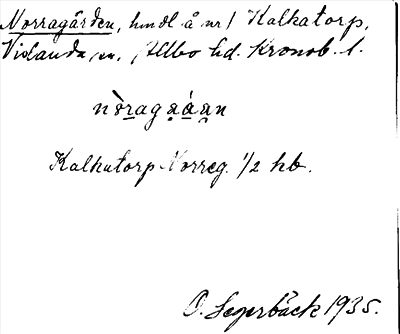 Norragården, hmdl å nr 1 Kalkatorp,
Vislanda sn. Allbo hd. Kronob. l.
nòragạ́ạn
Kalkatorp Norreg. 1/2 hb.
O. Segerbäck 1935.